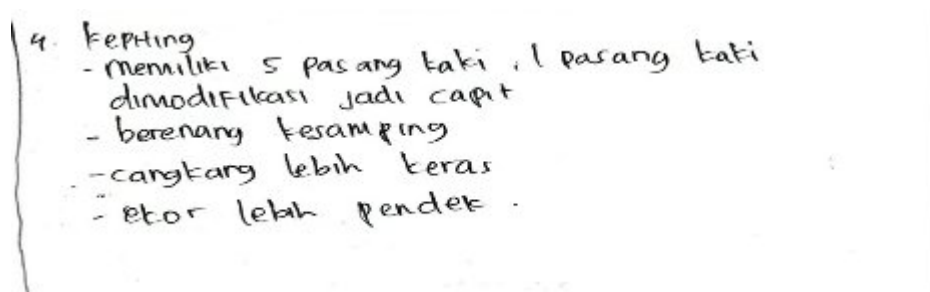 4. kepiting
- memiliki 5 pasang kaki, 1 pasang kaki
dimodifikasi jadi capit
- berenang kesamping
- cangkang lebih keras
- ekor lebih pendek.